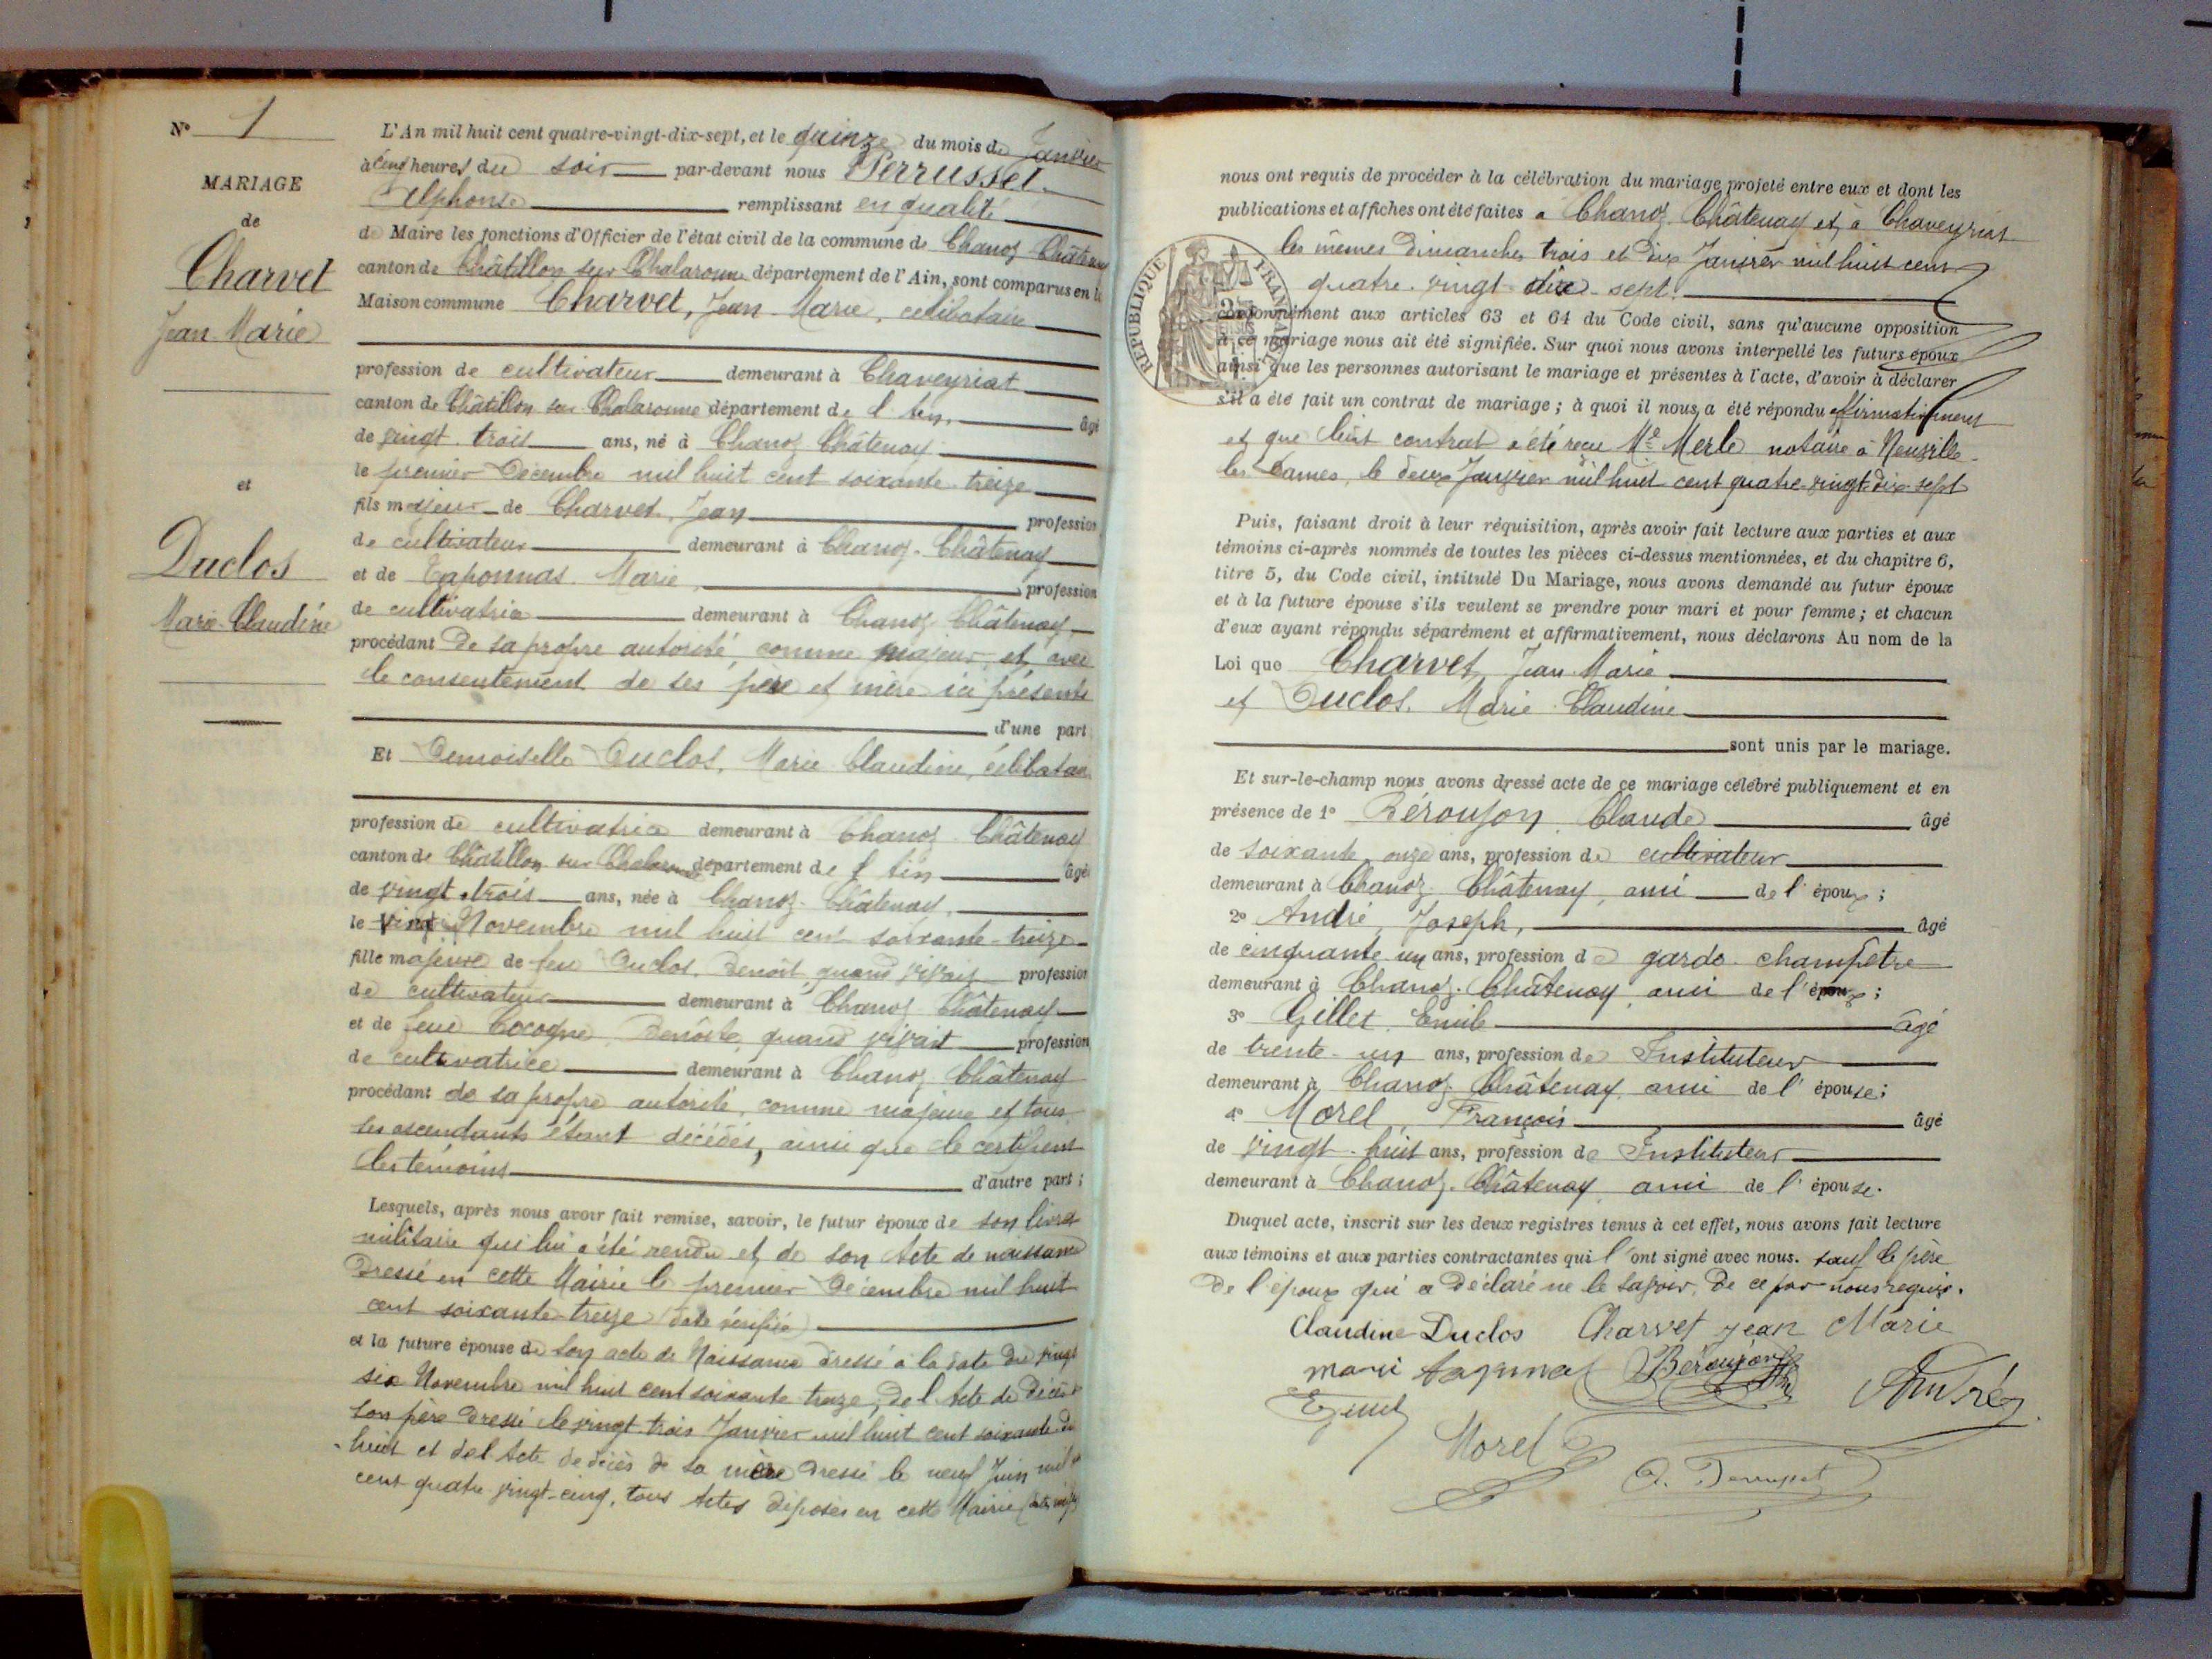 N° 1
MARIAGE
de
Charvet
Jean Marie
et
Duclos
Marie Claudine
L'An mil huit cent quatre-vingt-dix-sept, et le quinze du mois de Janvier
à cinq heures du soir par-devant nous Perrusset
Alphonse remplissant en qualité
de Maire les fonctions d'Officier de l'état civil de la commune de Chanoz Châtenay
canton de Châtillon sur Chalaronne département de l'Ain, sont comparus en la
Maison commune Charvet, Jean Marie, célibataire
profession de cultivateur demeurant à Chaveyriat
canton de Châtillon sur Chalaronne département de l'Ain, âgé
de vingt trois ans, né à Chanoz Châtenay
le premier Décembre mil huit cent soixante treize
fils majeur de Charvet, Jean profession
de cultivateur demeurant à Chanoz-Châtenay
et de Taponnas Marie, profession
de cultivatrice demeurant à Chanoz Châtenay
procédant de sa propre autorité, comme majeur et avec
le consentement de ses père et mère ici présents
d'une part
Et Demoiselle Duclos, Marie Claudine, célibataire
profession de cultivatrice demeurant à Chanoz Châtenay
canton de Châtillon sur Chalaronne département de l'Ain âgée
de vingt-trois ans, née à Chanoz-Châtenay,
le Novembre mil huit cent soixante-treize
fille majeure de feu Duclos, Benoît, quand vivait profession
de cultivateur demeurant à Chanoz Châtenay
et de feue Cocogne Benoîte, quand vivait profession
de cultivatrice demeurant à Chanoz Châtenay
procédant de sa propre autorité, comme majeure et tous
les ascendants étant décédés, ainsi que le certifient
les témoins d'autre part;
Lesquels, après nous avoir fait remise, savoir, le futur époux de son livret
militaire qui lui a été rendu et de son Acte de naissance
Dressé en cette Mairie le premier Décembre mil huit
cent soixante-treize (date vérifiée)
et la future épouse de son acte de Naissance dressé à la date du vingt
six Novembre mil huit cent soixante treize, de l'Acte de décès de
son père Dressé le vingt-trois Janvier mil huit cent soixante dix
huit et de l'Acte de décès de sa mère Dressé le neuf Juin mil
cent quatre vingt-cinq, tous Actes déposés en cette Mairie
nous ont requis de procéder à la célébration du mariage projeté entre eux et dont les
publications et affiches ont été faites à Chanoz-Châtenay et à Chaveyriat
les mêmes dimanches trois et dix Janvier mil huit cent
quatre-vingt-dix-sept.
RÉPUBLIQUE FRANÇAISE
conformément aux articles 63 et 64 du Code civil, sans qu'aucune opposition
à ce mariage nous ait été signifiée. Sur quoi nous avons interpellé les futurs époux
ainsi que les personnes autorisant le mariage et présentes à l'acte, d'avoir à déclarer
s'il a été fait un contrat de mariage; à quoi il nous a été répondu affirmativement
et que leur contrat a été reçu Me Merle notaire à Neuville-
les Dames, le deux Janvier mil huit cent quatre-vingt-dix-sept
Puis, faisant droit à leur réquisition, après avoir fait lecture aux parties et aux
témoins ci-après nommés de toutes les pièces ci-dessus mentionnées, et du chapitre 6,
titre 5, du Code civil, intitulé Du Mariage, nous avons demandé au futur époux
et à la future épouse s'ils veulent se prendre pour mari et pour femme; et chacun
d'eux ayant répondu séparément et affirmativement, nous déclarons Au nom de la
Loi que Charvet, Jean Marie
et Duclos, Marie Claudine
sont unis par le mariage.
Et sur-le-champ nous avons dressé acte de ce mariage célébré publiquement et en
présence de 1° Béroujon, Claude âgé
de soixante onze ans, profession de cultivateur
demeurant à Chanoz-Châtenay, ami de l'époux;
2° André, Joseph, âgé
de cinquante un ans, profession de garde-champêtre
demeurant à Chanoz-Châtenay, ami de l'époux;
3° Gillet, Emile âgé
de trente-un ans, profession de Instituteur
demeurant à Chanoz-Châtenay, ami de l'épouse;
4° Morel, François âgé
de vingt-huit ans, profession de Instituteur
demeurant à Chanoz-Châtenay, ami de l'épouse.
Duquel acte, inscrit sur les deux registres tenus à cet effet, nous avons fait lecture
aux témoins et aux parties contractantes qui l'ont signé avec nous. sauf le père
de l'époux qui a déclaré ne le savoir, de ce par nous requis.
Claudine Duclos Charvet jean Marie
mari Béroujon André
Morel